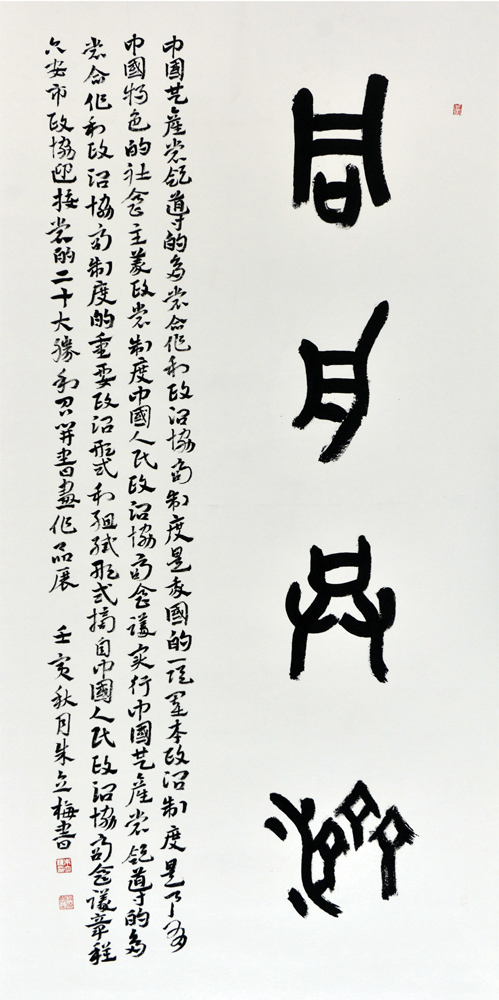 同舟共濟
中國共產党領導的多党合作和政治協商制度是我國的一項基本政治制度是具有
中國特色的社會主義政党制度中國人民政治協商會議实行中國共產党領導的多
党合作和政治協商制度的重要政治形式和組織形式摘自中國人民政治協商會議章程
六安市政協迎接党的二十大勝利召開書畫作品展 壬寅秋月朱立梅書